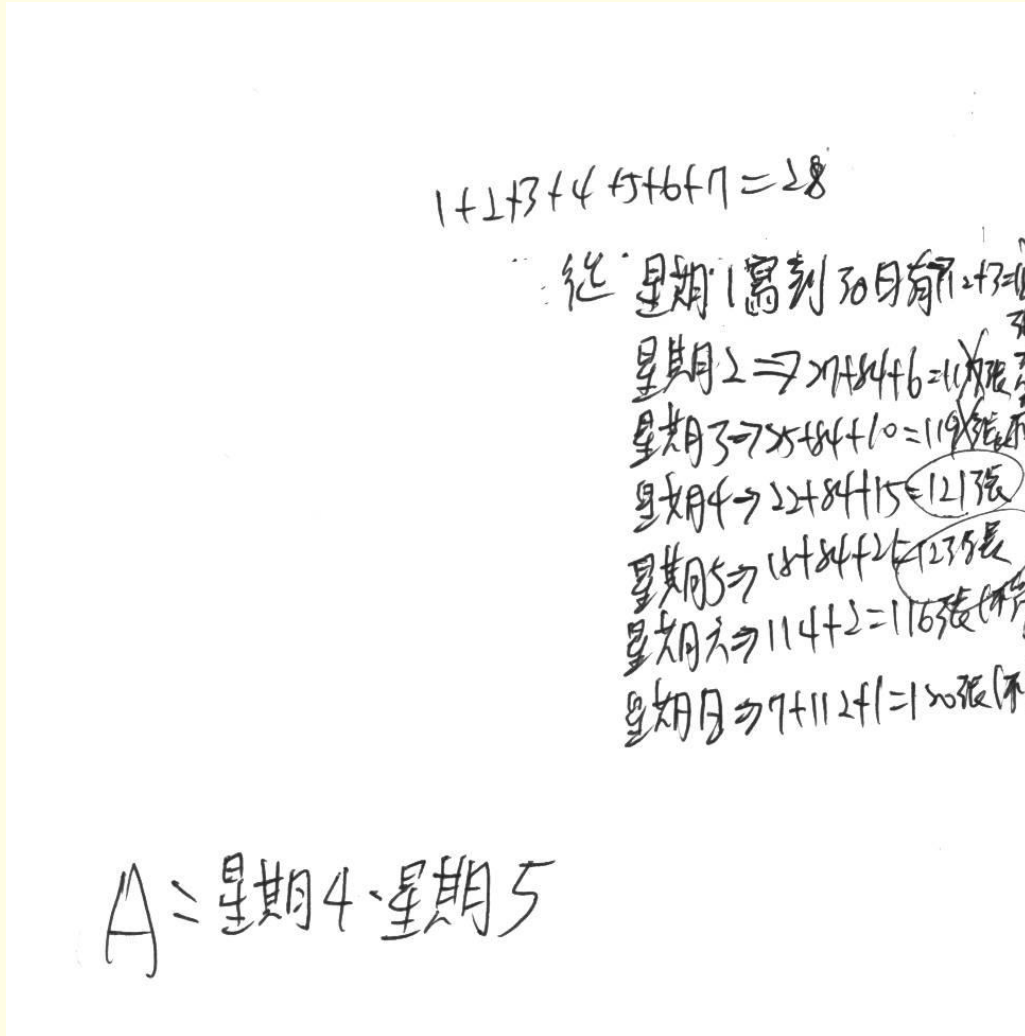 1+2+3+4+5+6+7=28
從星期1寫到30日有112+3=11
星期2⇒27+84+6=117張
星期3⇒25+84+10=119張
星期4⇒22+84+15=121張
星期5⇒18+84+21=123張
星期六⇒114+2=116張(不
星期日⇒7+112+1=120張(不
A:星期4、星期5